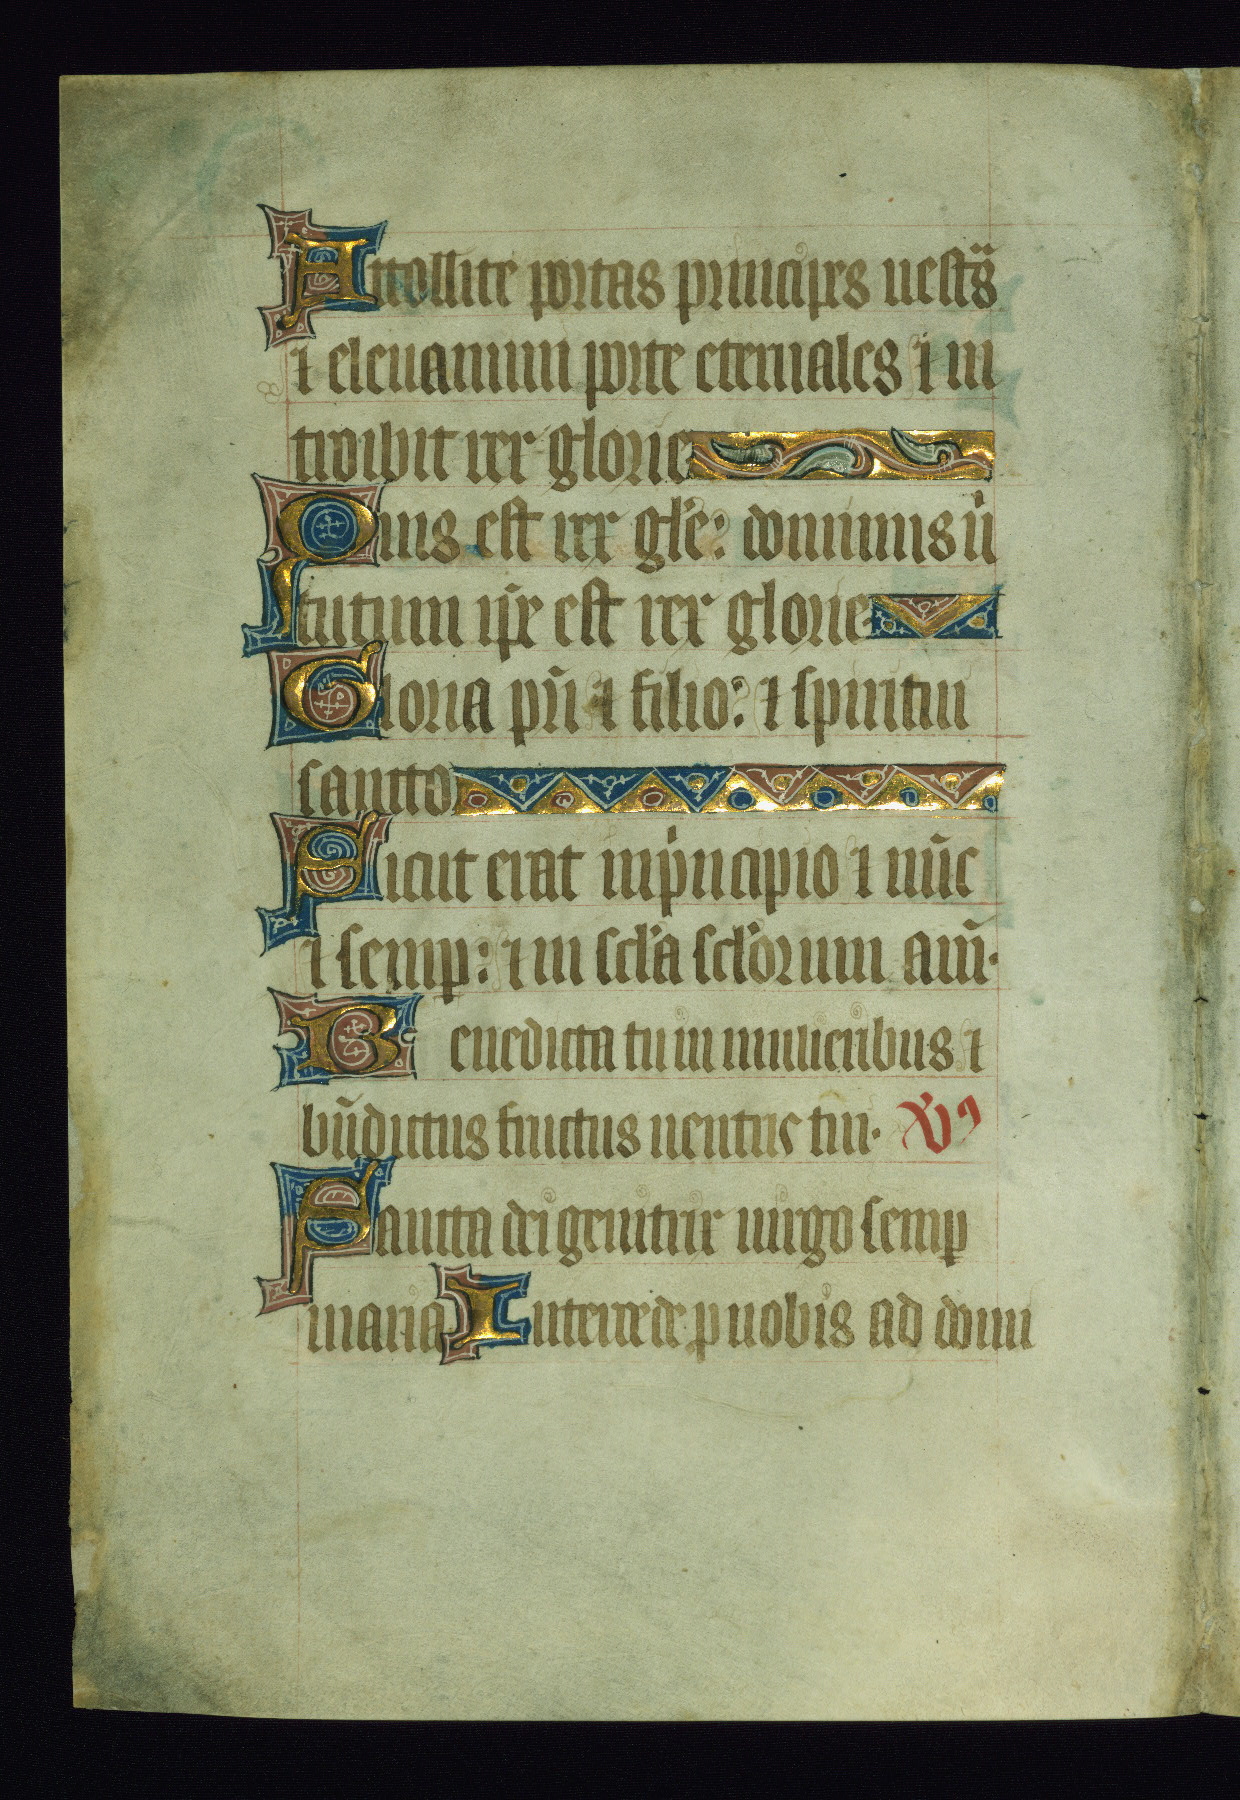 Attollite portas principes uestᷓs
⁊ eleuamini porte eternales ⁊ in
troibit rex glorie
Quis est rex gl̾e: dominus uͥ
tutum ip̄e est rex glorie
Gloria pr̄i ⁊ filio: ⁊ spiritui
sancto
Sicut erat in pͥncipio ⁊ nūc
⁊ semꝑ: ⁊ in scl̾a scl̾orum am̄.
Benedicta tu in mulieribus ⁊
bn̄dictus fructus uentris tui. V̾
Sancta dei genitrix uirgo semꝑ
maria Intercede ꝓ nobis ad domi